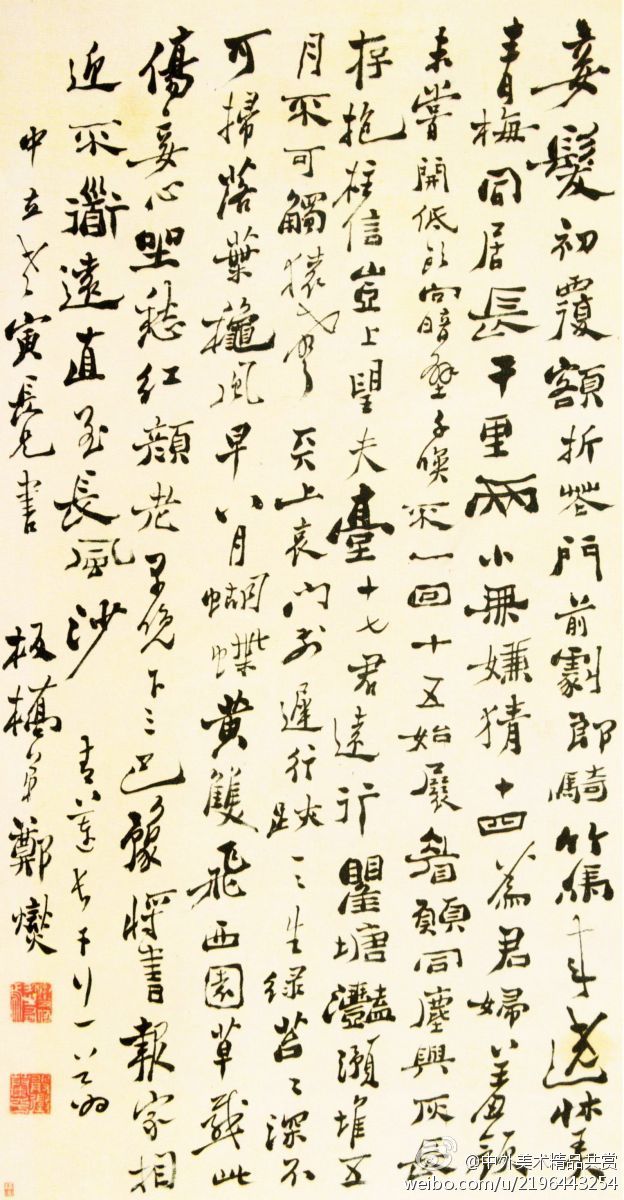 妾髮初覆額折花門前劇郎騎竹馬來遶牀弄
青梅同居長干里兩小無嫌猜十四為君婦羞顏
未嘗開低頭向暗壁千喚不一回十五始展眉願同塵與灰長
存抱柱信豈上望夫臺十七君遠行瞿塘灩澦堆五
月不可觸猿聲天上哀門前遲行跡一一生綠苔苔深不
可掃落葉秋風早八月蝴蝶黃雙飛西園草感此
傷妾心坐愁紅顏老早晚下三巴豫將書報家相
迎不道遠直至長風沙
青蓮長干行一首為
中立老寅長兄書
板橋弟鄭燮
@中外美術精品共賞
weibo.com/u/2196443254